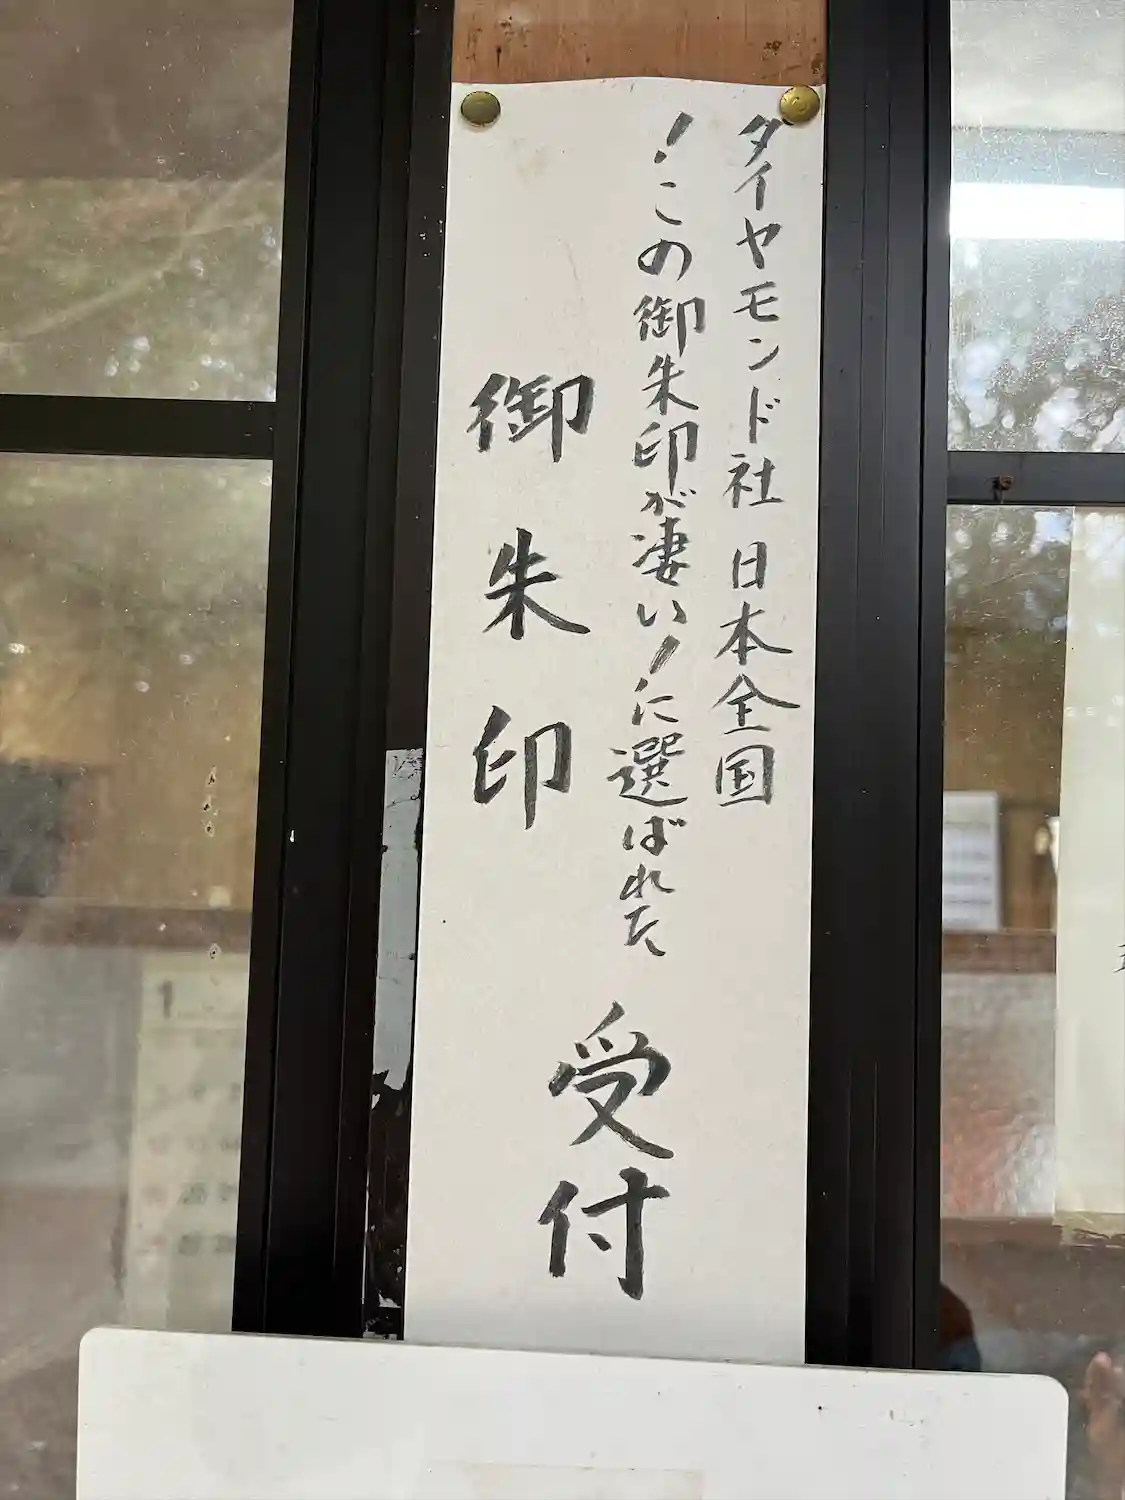 ダイヤモンド社 日本全国
！この御朱印が凄い！に選ばれた
御朱印
受付